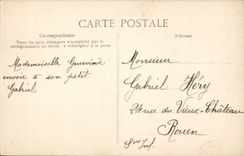 CARTE POSTALE
Correspondance
Adresse
Tous les pays étrangers n'acceptent pas la
correspondance au recto, se renseigner à la poste
Mademoiselle Geneviève
envoie à son petit
Gabriel
Monsieur
Gabriel Héry
rue du Vieux-Château
Rouen
Sne Inf.